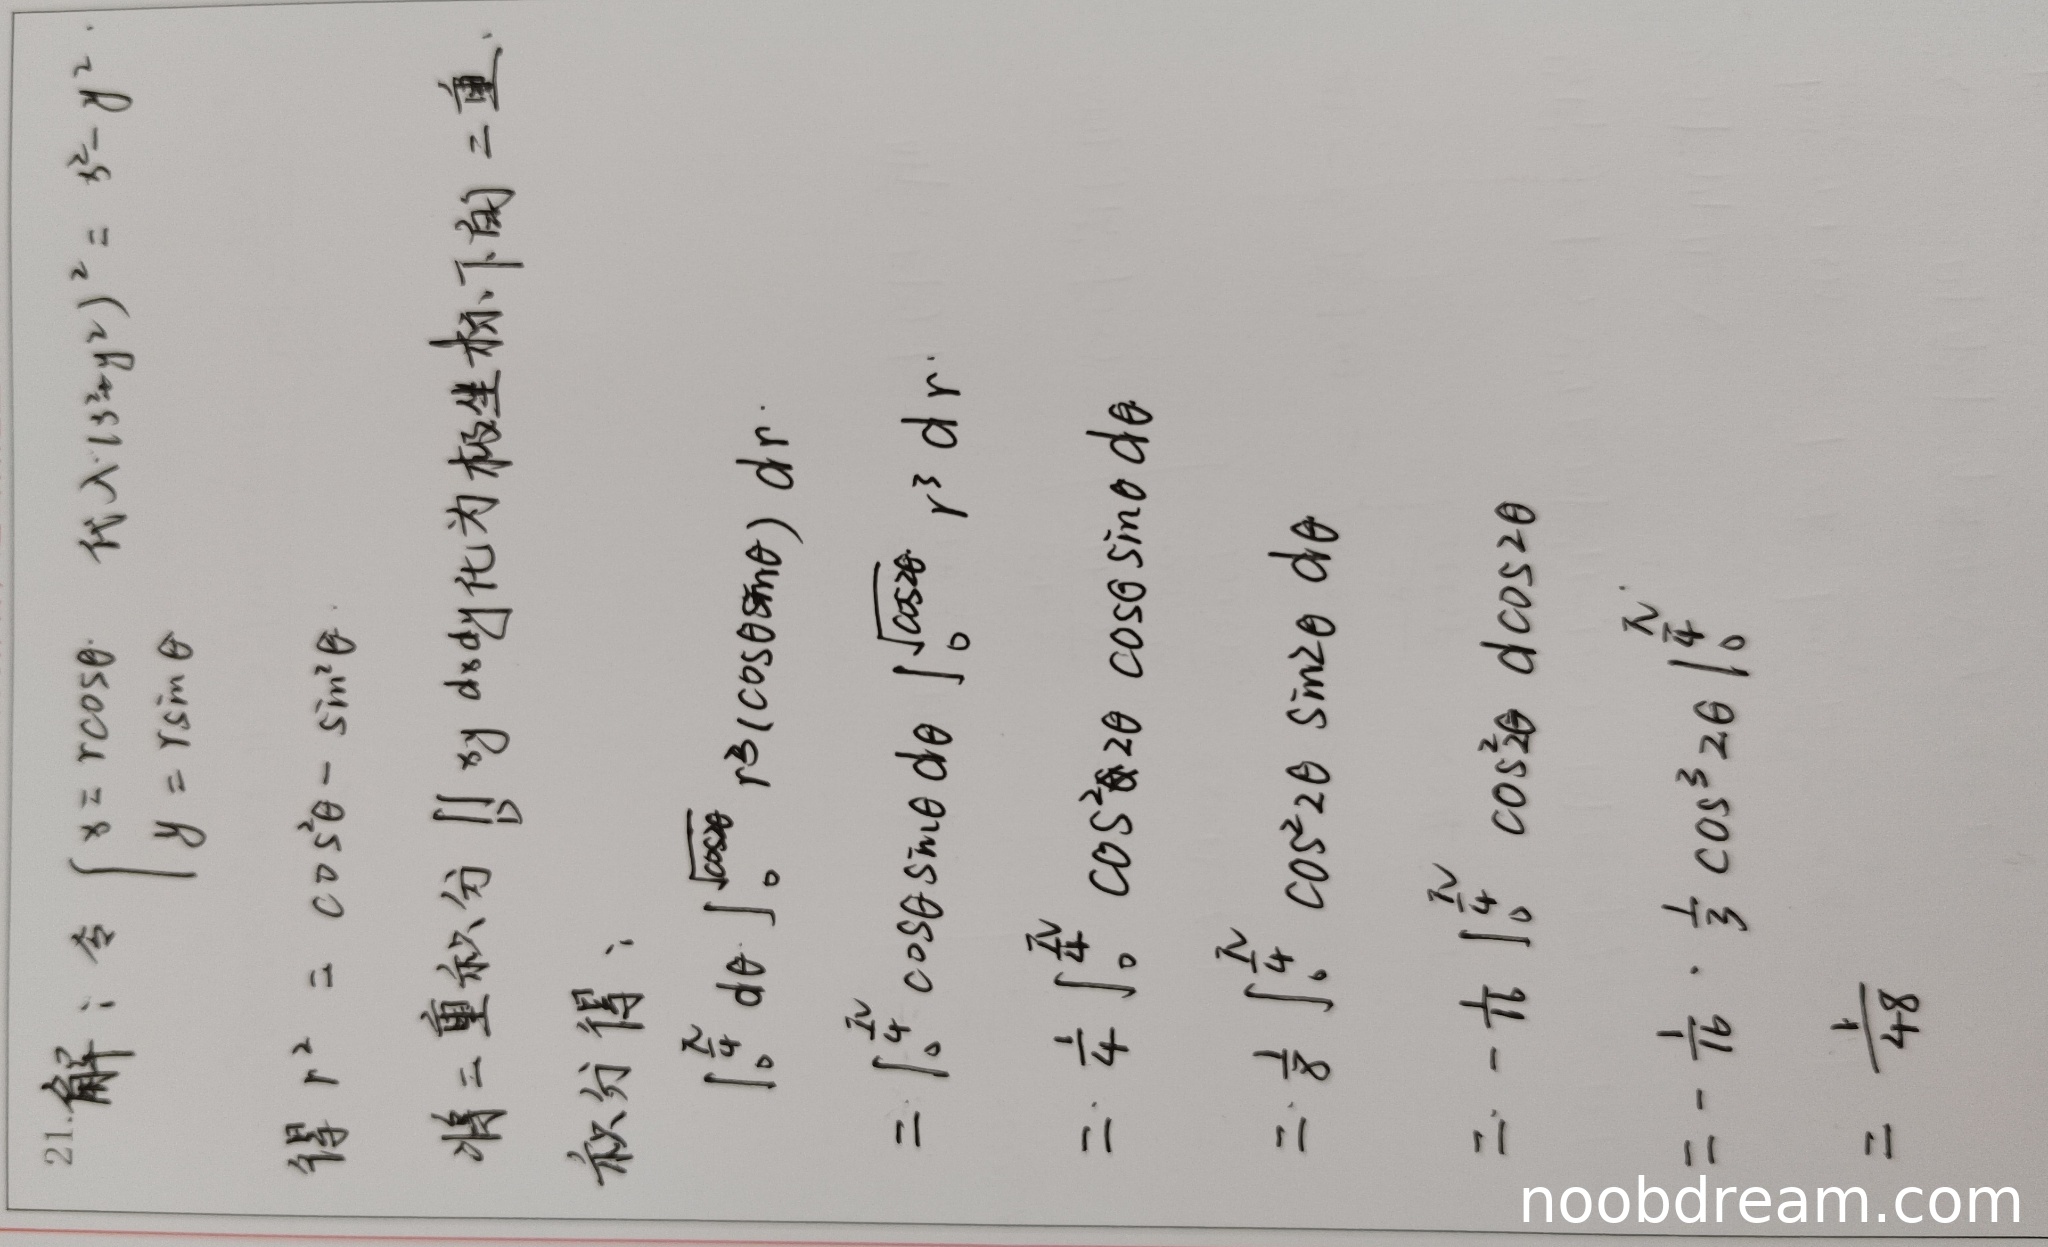 21. 解：令 { x = rcosθ 代入 (x²+y²)² = x²-y².
y = rsinθ
得 r² = cos²θ - sin²θ.
将二重积分 ∬_D xy dxdy 化为极坐标下的二重
积分得：
∫₀^(π/4) dθ ∫₀^(√cos2θ) r³(cosθsinθ) dr.
= ∫₀^(π/4) cosθsinθ dθ ∫₀^(√cos2θ) r³ dr.
= 1/4 ∫₀^(π/4) cos²2θ cosθ sinθ dθ
= 1/8 ∫₀^(π/4) cos²2θ sin2θ dθ
= -1/16 ∫₀^(π/4) cos²2θ dcos2θ
= -1/16 · 1/3 cos³2θ |₀^(π/4).
= 1/48
noobdream.com